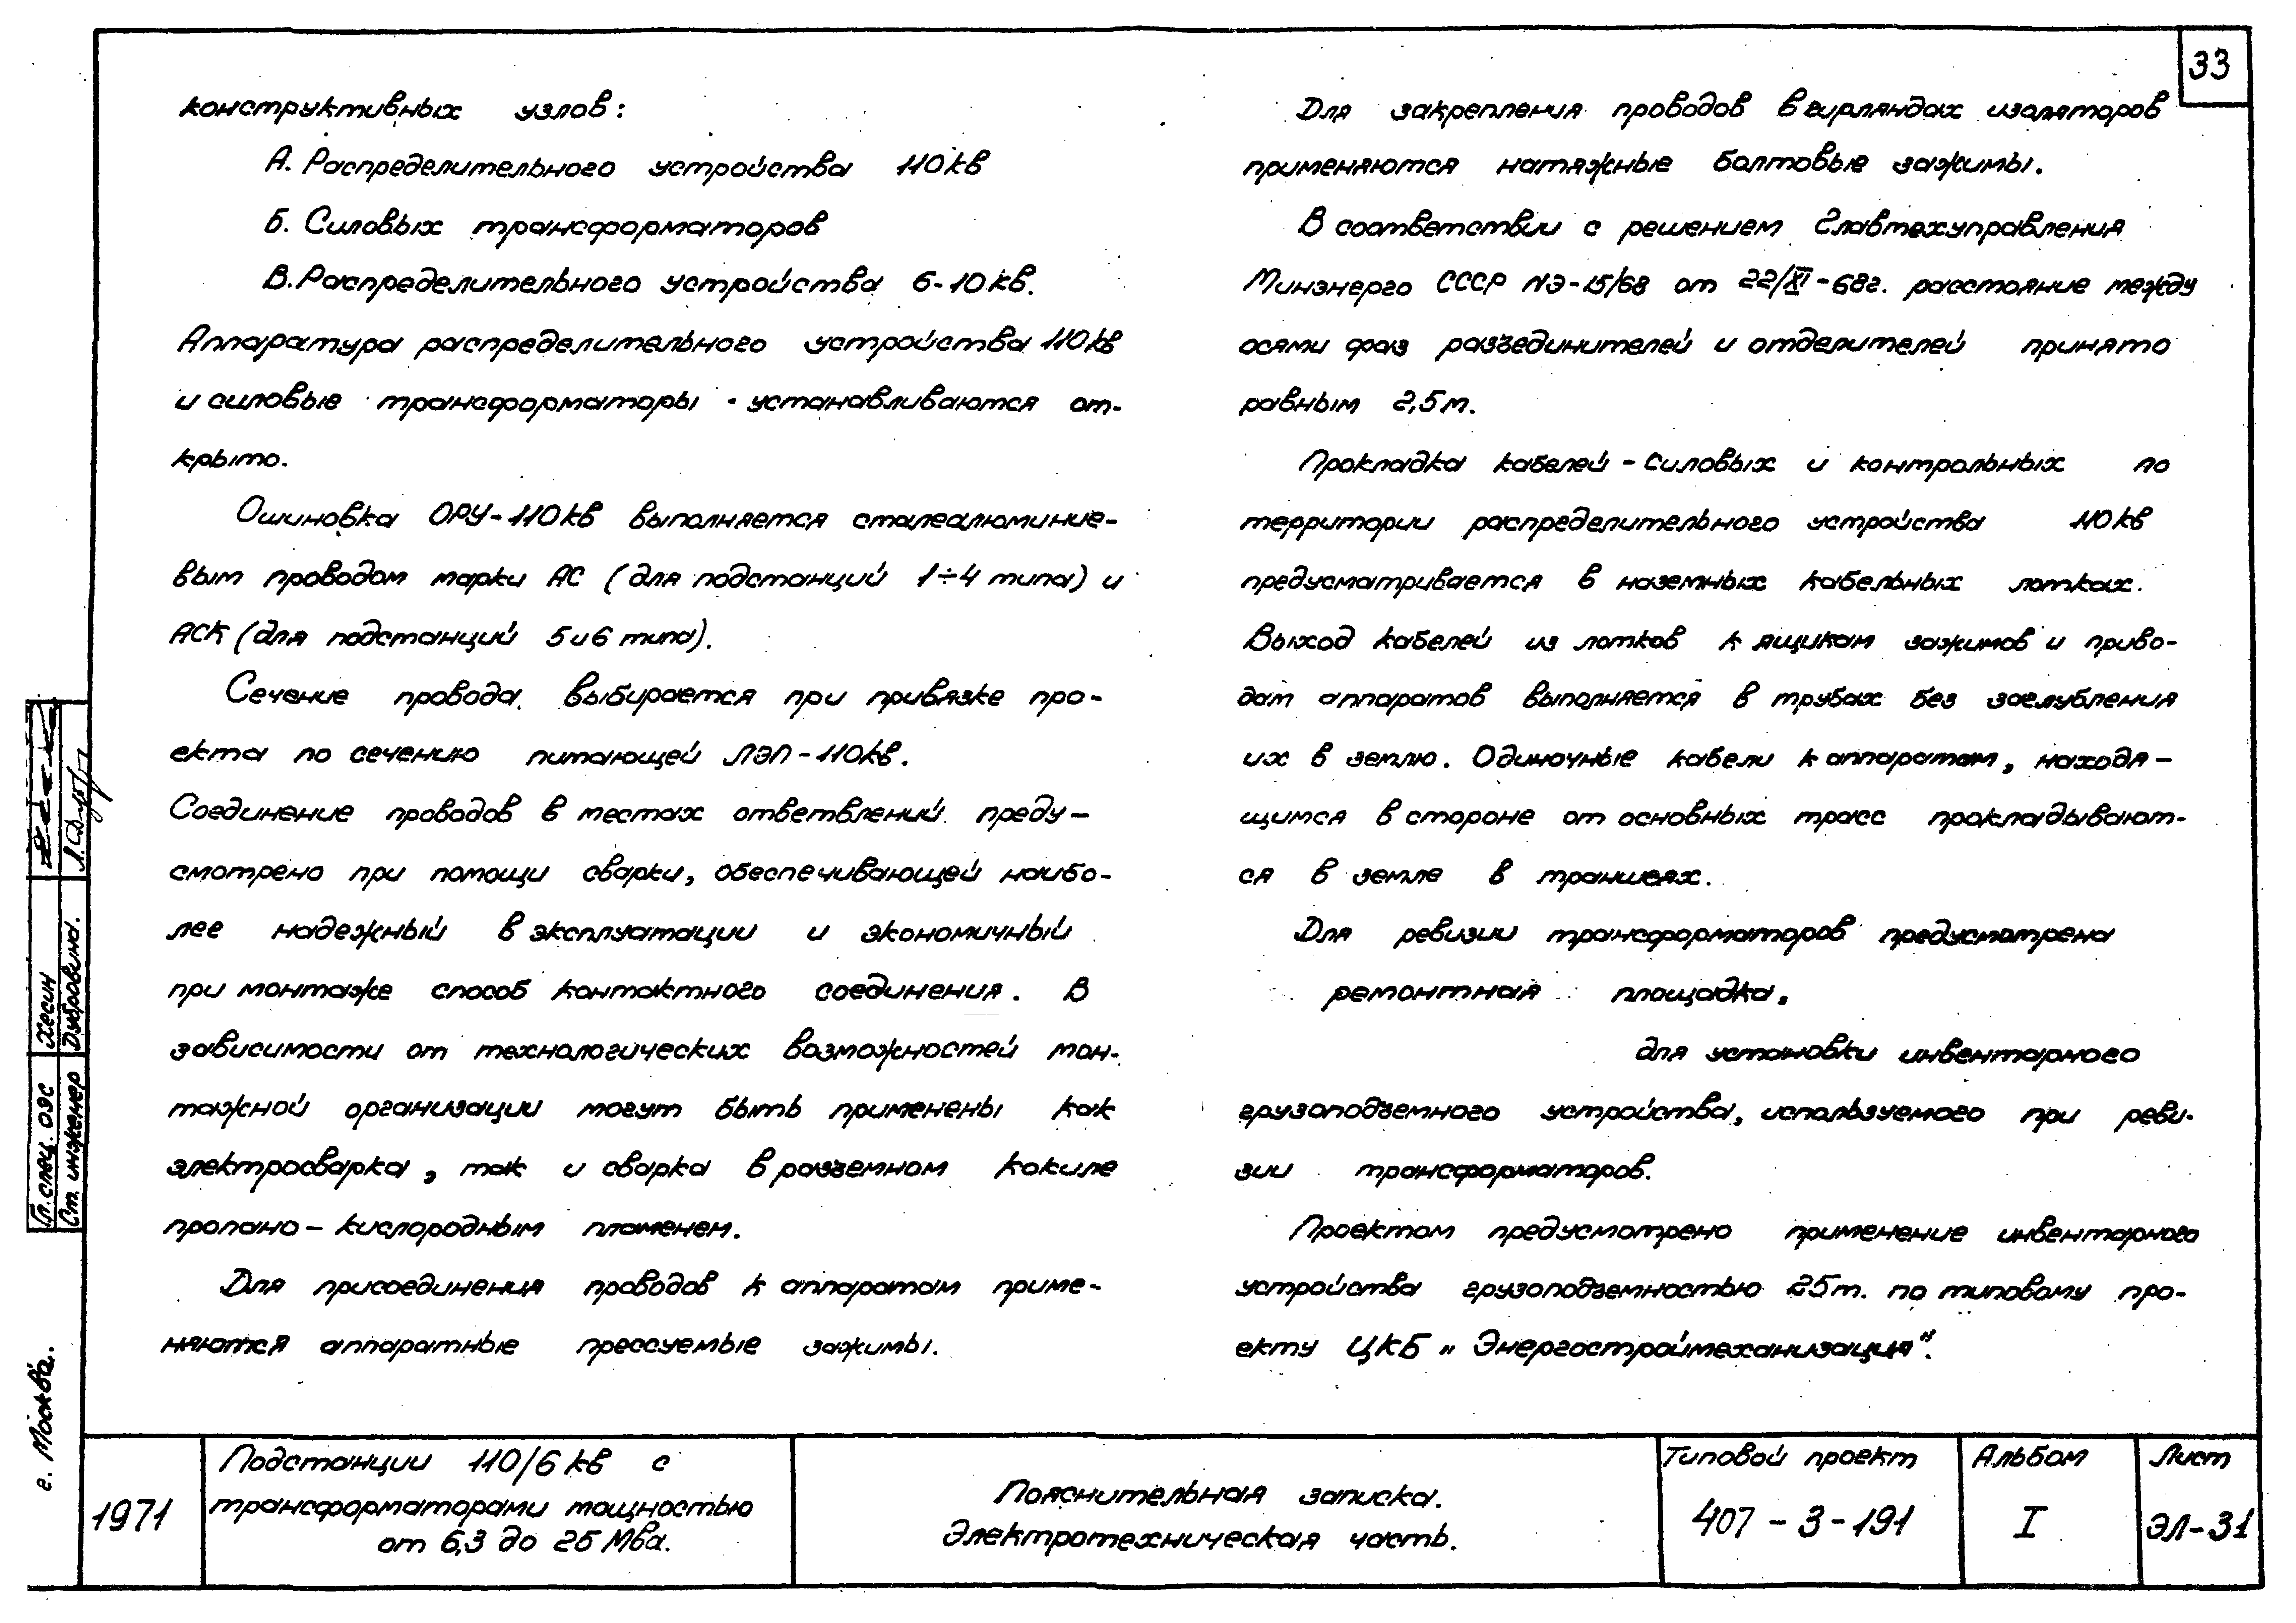 33
конструктивных узлов:
А. Распределительного устройства 110кв
Б. Силовых трансформаторов
В. Распределительного устройства 6-10кв.
Аппаратура распределительного устройства 110кв
и силовые трансформаторы устанавливаются от-
крыто.
Ошиновка ОРУ-110кв выполняется сталеалюминие-
вым проводом марки АС (для подстанций 1÷4 типа) и
АСК (для подстанций 5 и 6 типа).
Сечение провода выбирается при привязке про-
екта по сечению питающей ЛЭП-110кв.
Соединение проводов в местах ответвлений преду-
смотрено при помощи сварки, обеспечивающей наибо-
лее надежный в эксплуатации и экономичный
при монтаже способ контактного соединения. В
зависимости от технологических возможностей мон-
тажной организации могут быть применены как
электросварка, так и сварка в разъемном кокиле
пропано-кислородным пламенем.
Для присоединения проводов к аппаратам приме-
няются аппаратные прессуемые зажимы.
Для закрепления проводов в гирляндах изоляторов
применяются натяжные болтовые зажимы.
В соответствии с решением Главтехуправления
Минэнерго СССР №Э-15/68 от 22/XI-68г. расстояние между
осями фаз разъединителей и отделителей принято
равным 2,5м.
Прокладка кабелей - силовых и контрольных по
территории распределительного устройства 110кв
предусматривается в наземных кабельных лотках.
Выход кабелей из лотков к ящикам зажимов и приво-
дам аппаратов выполняется в трубах без заглубления
их в землю. Одиночные кабели к аппаратам, находя-
щимся в стороне от основных трасс прокладывают-
ся в земле в траншеях.
Для ревизии трансформаторов предусмотрена
ремонтная площадка,
для установки инвентарного
грузоподъемного устройства, используемого при реви-
зии трансформаторов.
Проектом предусмотрено применение инвентарного
устройства грузоподъемностью 25т. по типовому про-
екту ЦКБ „Энергостроймеханизация".
Гл. спец. ОЭС Хесин
Ст. инженер Дубровина.
г. Москва.
1971
Подстанции 110/6 кв с
трансформаторами мощностью
от 6,3 до 25 Мва.
Пояснительная записка.
Электротехническая часть.
Типовой проект
407-3-191
Альбом
I
Лист
ЭЛ-31